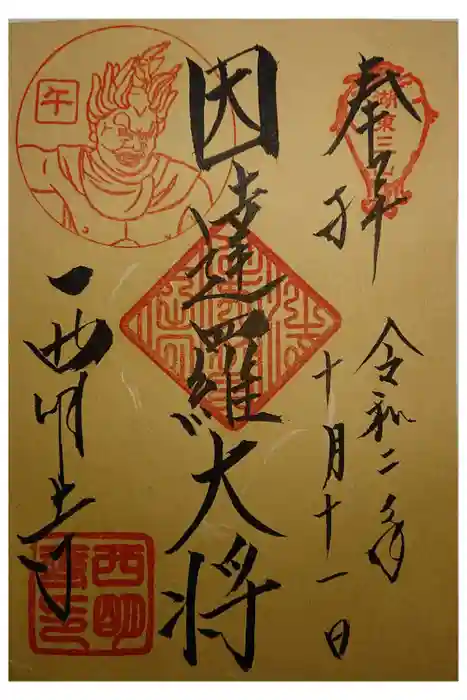 奉拝
湖東三山
令和二年
十月十一日
因達羅大将
午
西明寺
西明寺印